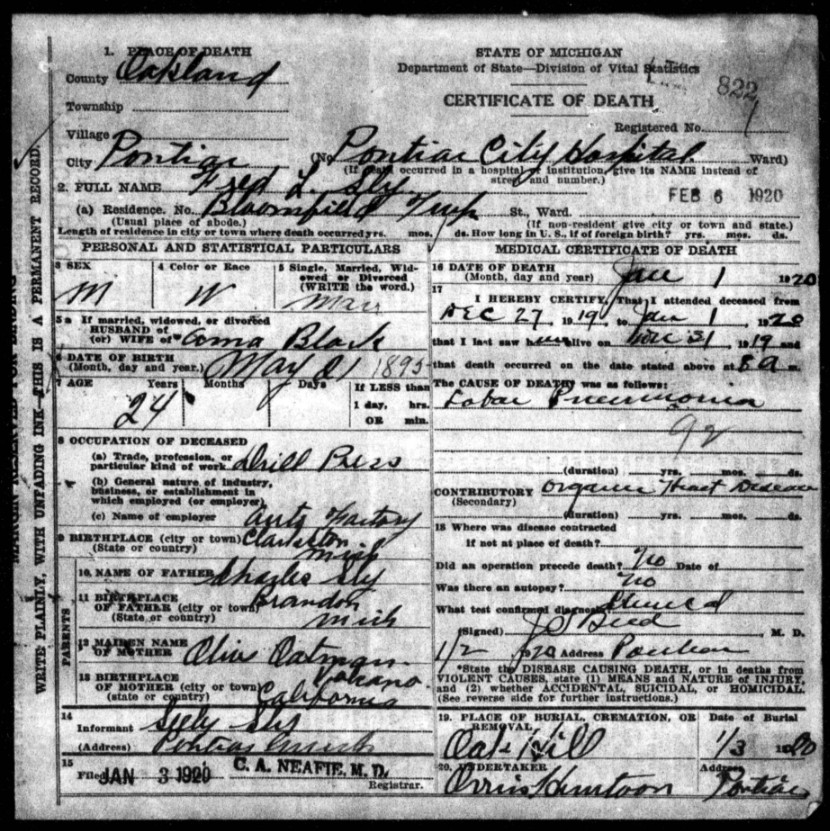 1. PLACE OF DEATH
County Oakland
Township
Village
City Pontiac (No. Pontiac City Hospital Ward)
(If death occurred in a hospital or institution, give its NAME instead of street and number.)
STATE OF MICHIGAN
Department of State—Division of Vital Statistics
CERTIFICATE OF DEATH
822
Registered No. 1
2. FULL NAME Fred L. Sly
FEB 6 1920
(a) Residence. No. Bloomfield Twp St., Ward.
(Usual place of abode.) (If non-resident give city or town and state.)
Length of residence in city or town where death occurred yrs. mos. ds. How long in U. S., if of foreign birth? yrs. mos. ds.
PERSONAL AND STATISTICAL PARTICULARS
3 SEX
M
4 Color or Race
W
5 Single, Married, Widowed or Divorced
(WRITE the word.)
Mar
5a If married, widowed, or divorced
HUSBAND of
(or) WIFE of Black
6 DATE OF BIRTH
(Month, day and year.) May 1895
7 AGE Years Months Days If LESS than
1 day, hrs.
OR min.
24
8 OCCUPATION OF DECEASED
(a) Trade, profession, or
particular kind of work Drill Press
(b) General nature of industry,
business, or establishment in
which employed (or employer)
(c) Name of employer Auto Factory
9 BIRTHPLACE (city or town) Clarkston
(State or country) Mich
PARENTS
10 NAME OF FATHER Charles Sly
11 BIRTHPLACE
OF FATHER (city or town) Brandon
(State or country) Mich
12 MAIDEN NAME
OF MOTHER Oatman
13 BIRTHPLACE
OF MOTHER (city or town) Volcano
(state or country) California
14
Informant Seely Sly
(Address) Pontiac Mich
15
Filed JAN 3 1920 C. A. NEAFIE, M. D.
Registrar.
MEDICAL CERTIFICATE OF DEATH
16 DATE OF DEATH
(Month, day and year) Jan 1 1920
17
I HEREBY CERTIFY, That I attended deceased from
DEC 27, 1919, to Jan 1, 1920
that I last saw him alive on Dec 31, 1919 and
that death occurred on the date stated above at 8 a m.
The CAUSE OF DEATH was as follows:
Lobar Pneumonia
92
(duration) yrs. mos. ds.
CONTRIBUTORY Organic Heart Disease
(Secondary)
(duration) yrs. mos. ds.
18 Where was disease contracted
If not at place of death?
Did an operation precede death? No Date of
Was there an autopsy? No
What test confirmed diagnosis? Clinical
(Signed) M. D.
1/2, 1920 Address Pontiac
*State the DISEASE CAUSING DEATH, or in deaths from
VIOLENT CAUSES, state (1) MEANS and NATURE of INJURY,
and (2) whether ACCIDENTAL, SUICIDAL, or HOMICIDAL.
(See reverse side for further instructions.)
19. PLACE OF BURIAL, CREMATION, OR REMOVAL
Oak Hill
Date of Burial
1/3 1920
20. UNDERTAKER
Orris Huntoon
Address
Pontiac
WRITE PLAINLY, WITH UNFADING INK—THIS IS A PERMANENT RECORD.
MARGIN RESERVED FOR BINDING